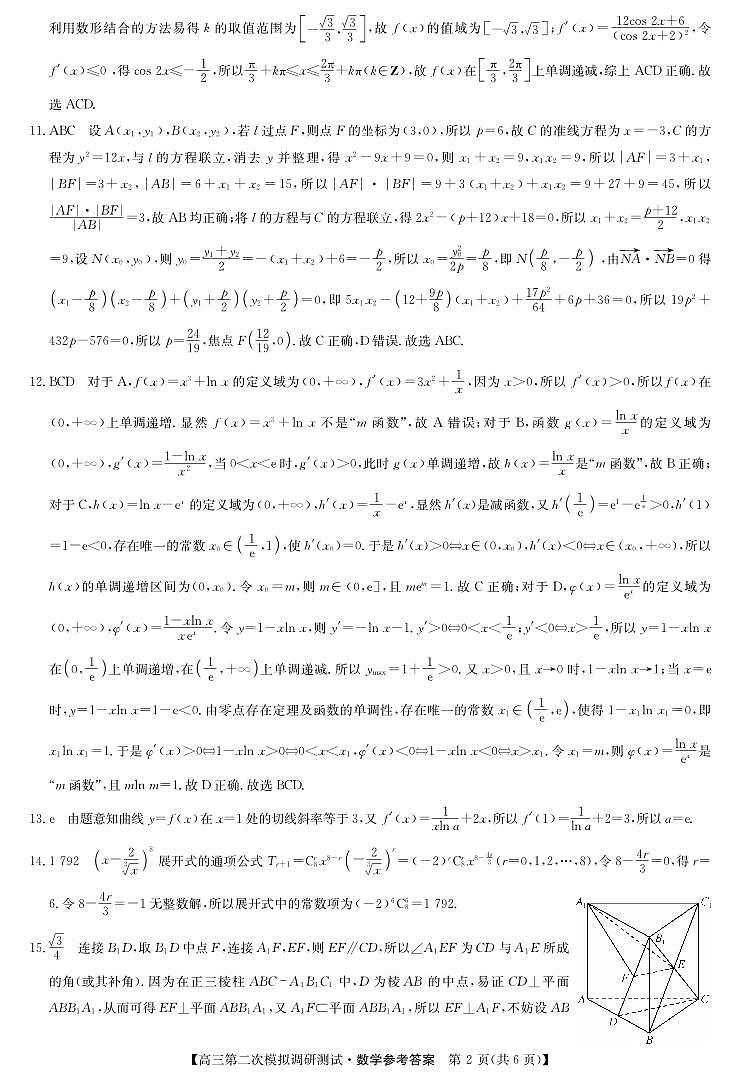 利用数形结合的方法易得 k 的取值范围为[-√3/3,√3/3],故 f(x)的值域为[-√3,√3];f′(x)=(12cos 2x+6)/(cos 2x+2)²,令
f′(x)≤0,得 cos 2x≤-1/2,所以π/3+kπ≤x≤2π/3+kπ(k∈Z),故 f(x)在[π/3,2π/3]上单调递减,综上 ACD 正确.故
选 ACD.
11. ABC 设 A(x₁,y₁),B(x₂,y₂),若 l 过点 F,则点 F 的坐标为(3,0),所以 p=6,故 C 的准线方程为 x=-3,C 的方
程为 y²=12x,与 l 的方程联立,消去 y 并整理,得 x²-9x+9=0,则 x₁+x₂=9,x₁x₂=9,所以|AF|=3+x₁,
|BF|=3+x₂,|AB|=6+x₁+x₂=15,所以|AF|·|BF|=9+3(x₁+x₂)+x₁x₂=9+27+9=45,所以
|AF|·|BF|/|AB|=3,故 AB 均正确;将 l 的方程与 C 的方程联立,得 2x²-(p+12)x+18=0,所以 x₁+x₂=(p+12)/2,x₁x₂
=9,设 N(x₀,y₀),则 y₀=(y₁+y₂)/2=-(x₁+x₂)+6=-p/2,所以 x₀=y₀²/2p=p/8,即 N(p/8,-p/2),由→NA·→NB=0 得
(x₁-p/8)(x₂-p/8)+(y₁+p/2)(y₂+p/2)=0,即 5x₁x₂-(12+9p/8)(x₁+x₂)+17p²/64+6p+36=0,所以 19p²+
432p-576=0,所以 p=24/19,焦点 F(12/19,0).故 C 正确,D 错误.故选 ABC.
12. BCD 对于 A,f(x)=x³+ln x 的定义域为(0,+∞),f′(x)=3x²+1/x,因为 x>0,所以 f′(x)>0,所以 f(x)在
(0,+∞)上单调递增.显然 f(x)=x³+ln x 不是“m 函数”,故 A 错误;对于 B,函数 g(x)=ln x/x的定义域为
(0,+∞),g′(x)=(1-ln x)/x²,当 0<x<e 时,g′(x)>0,此时 g(x)单调递增,故 h(x)=ln x/x是“m 函数”,故 B 正确;
对于 C,h(x)=ln x-eˣ 的定义域为(0,+∞),h′(x)=1/x-eˣ,显然 h′(x)是减函数,又 h′(1/e)=e¹-e^(1/e)>0,h′(1)
=1-e<0,存在唯一的常数 x₀∈(1/e,1),使 h′(x₀)=0.于是 h′(x)>0⇔x∈(0,x₀),h′(x)<0⇔x∈(x₀,+∞),所以
h(x)的单调递增区间为(0,x₀).令 x₀=m,则 m∈(0,e],且 meᵐ=1.故 C 正确;对于 D,φ(x)=ln x/eˣ的定义域为
(0,+∞),φ′(x)=(1-xln x)/xeˣ.令 y=1-xln x,则 y′=-ln x-1.y′>0⇔0<x<1/e;y′<0⇔x>1/e,所以 y=1-xln x
在(0,1/e)上单调递增,在(1/e,+∞)上单调递减.所以 yₘₐₓ=1+1/e>0.又 x>0,且 x→0 时,1-xln x→1;当 x=e
时,y=1-xln x=1-e<0.由零点存在定理及函数的单调性,存在唯一的常数 x₁∈(1/e,e),使得 1-x₁ln x₁=0,即
x₁ln x₁=1.于是 φ′(x)>0⇔1-xln x>0⇔0<x<x₁,φ′(x)<0⇔1-xln x<0⇔x>x₁.令 x₁=m,则 φ(x)=ln x/eˣ是
“m 函数”,且 mln m=1.故 D 正确.故选 BCD.
13. e 由题意知曲线 y=f(x)在 x=1 处的切线斜率等于 3,又 f′(x)=1/(xln a)+2x,所以 f′(1)=1/ln a+2=3,所以 a=e.
14. 1 792 (x-2/∛x)⁸ 展开式的通项公式 Tᵣ₊₁=C₈ʳx⁸⁻ʳ(-2/∛x)ʳ=(-2)ʳC₈ʳx^(8-4r/3)(r=0,1,2,…,8),令 8-4r/3=0,得 r=
6.令 8-4r/3=-1 无整数解,所以展开式中的常数项为(-2)⁶C₈⁶=1 792.
15. √3/4 连接 B₁D,取 B₁D 中点 F,连接 A₁F,EF,则 EF∥CD,所以∠A₁EF 为 CD 与 A₁E 所成
的角(或其补角).因为在正三棱柱 ABC-A₁B₁C₁ 中,D 为棱 AB 的中点,易证 CD⊥平面
ABB₁A₁,从而可得 EF⊥平面 ABB₁A₁,又 A₁F⊂平面 ABB₁A₁,所以 EF⊥A₁F,不妨设 AB
A₁
C₁
B₁
E
F
A
C
D
B
【高三第二次模拟调研测试·数学参考答案 第 2 页(共 6 页)】